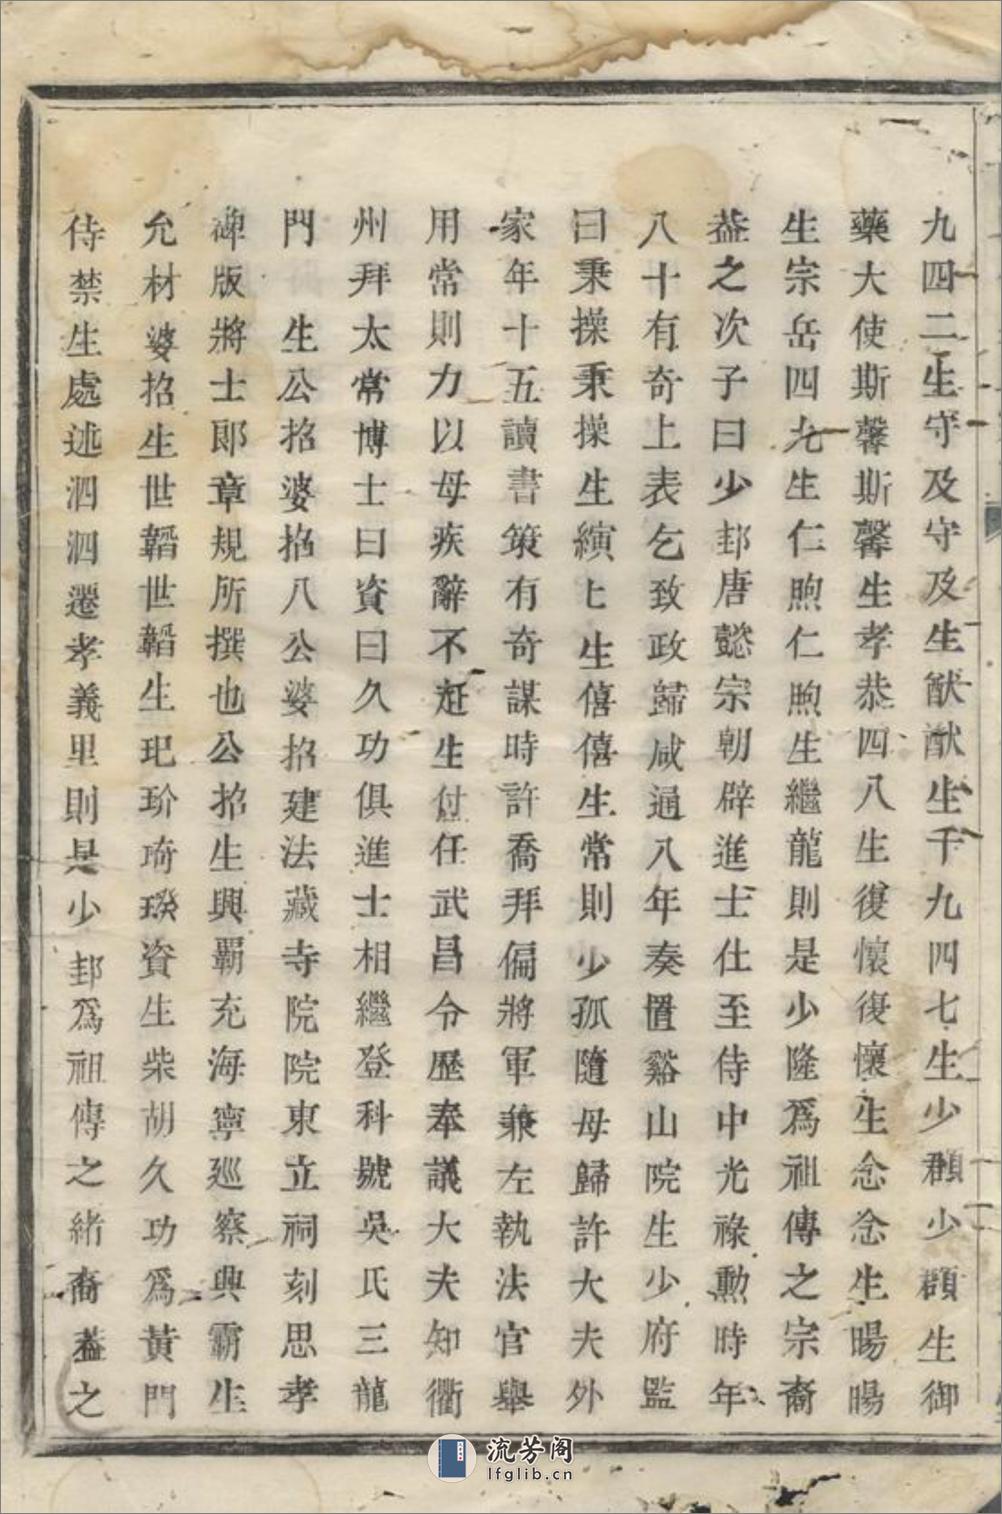 九四二生守及守及生猷猷生千九四七生少頵少頵生御
藥大使斯馨斯馨生孝恭四八生復懷復懷生念念生暘暘
生宗岳四九生仁煦仁煦生繼龍則是少隆爲祖傳之宗裔
益之次子曰少邽唐懿宗朝辟進士仕至侍中光祿勲時年
八十有奇上表乞致政歸咸通八年奏置谿山院生少府監
曰秉操秉操生縯七生僖僖生常則少孤隨母歸許大夫外
家年十五讀書策有奇謀時許喬拜偏將軍兼左執法官舉
用常則力以母疾辭不赴生付任武昌令歷奉議大夫知衢
州拜太常博士曰資曰久功俱進士相繼登科號吳氏三龍
門 生公招婆招八公婆招建法藏寺院院東立祠刻思孝
碑版將士郎章規所撰也公招生興霸充海寧廵察興霸生
允材婆招生世韜世韜生玘玠琦璎資生柴胡久功爲黃門
侍禁生處述泗泗遷孝義里則是少邽爲祖傳之緒裔益之
流芳阁
lfglib.cn